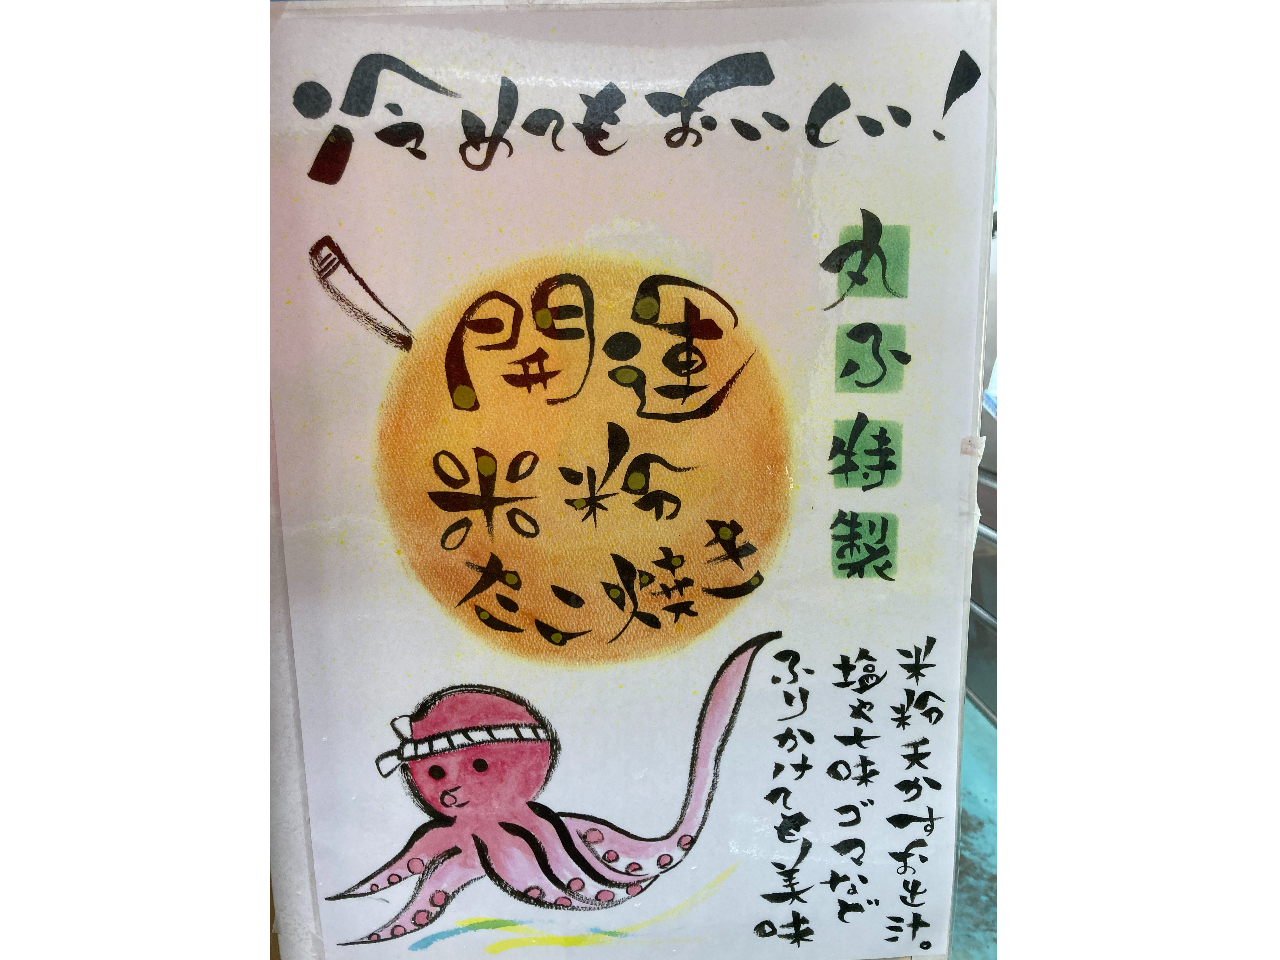 冷めてもおいしい!
丸ふ特製
開運
米粉
たこ焼き
米粉天かすお出汁。
塩や七味ゴマなど
ふりかけても美味